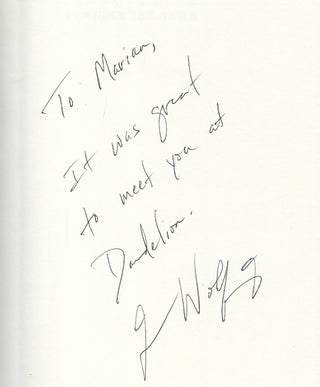 To: Marian,
It was great
to meet you at
Dandelion.